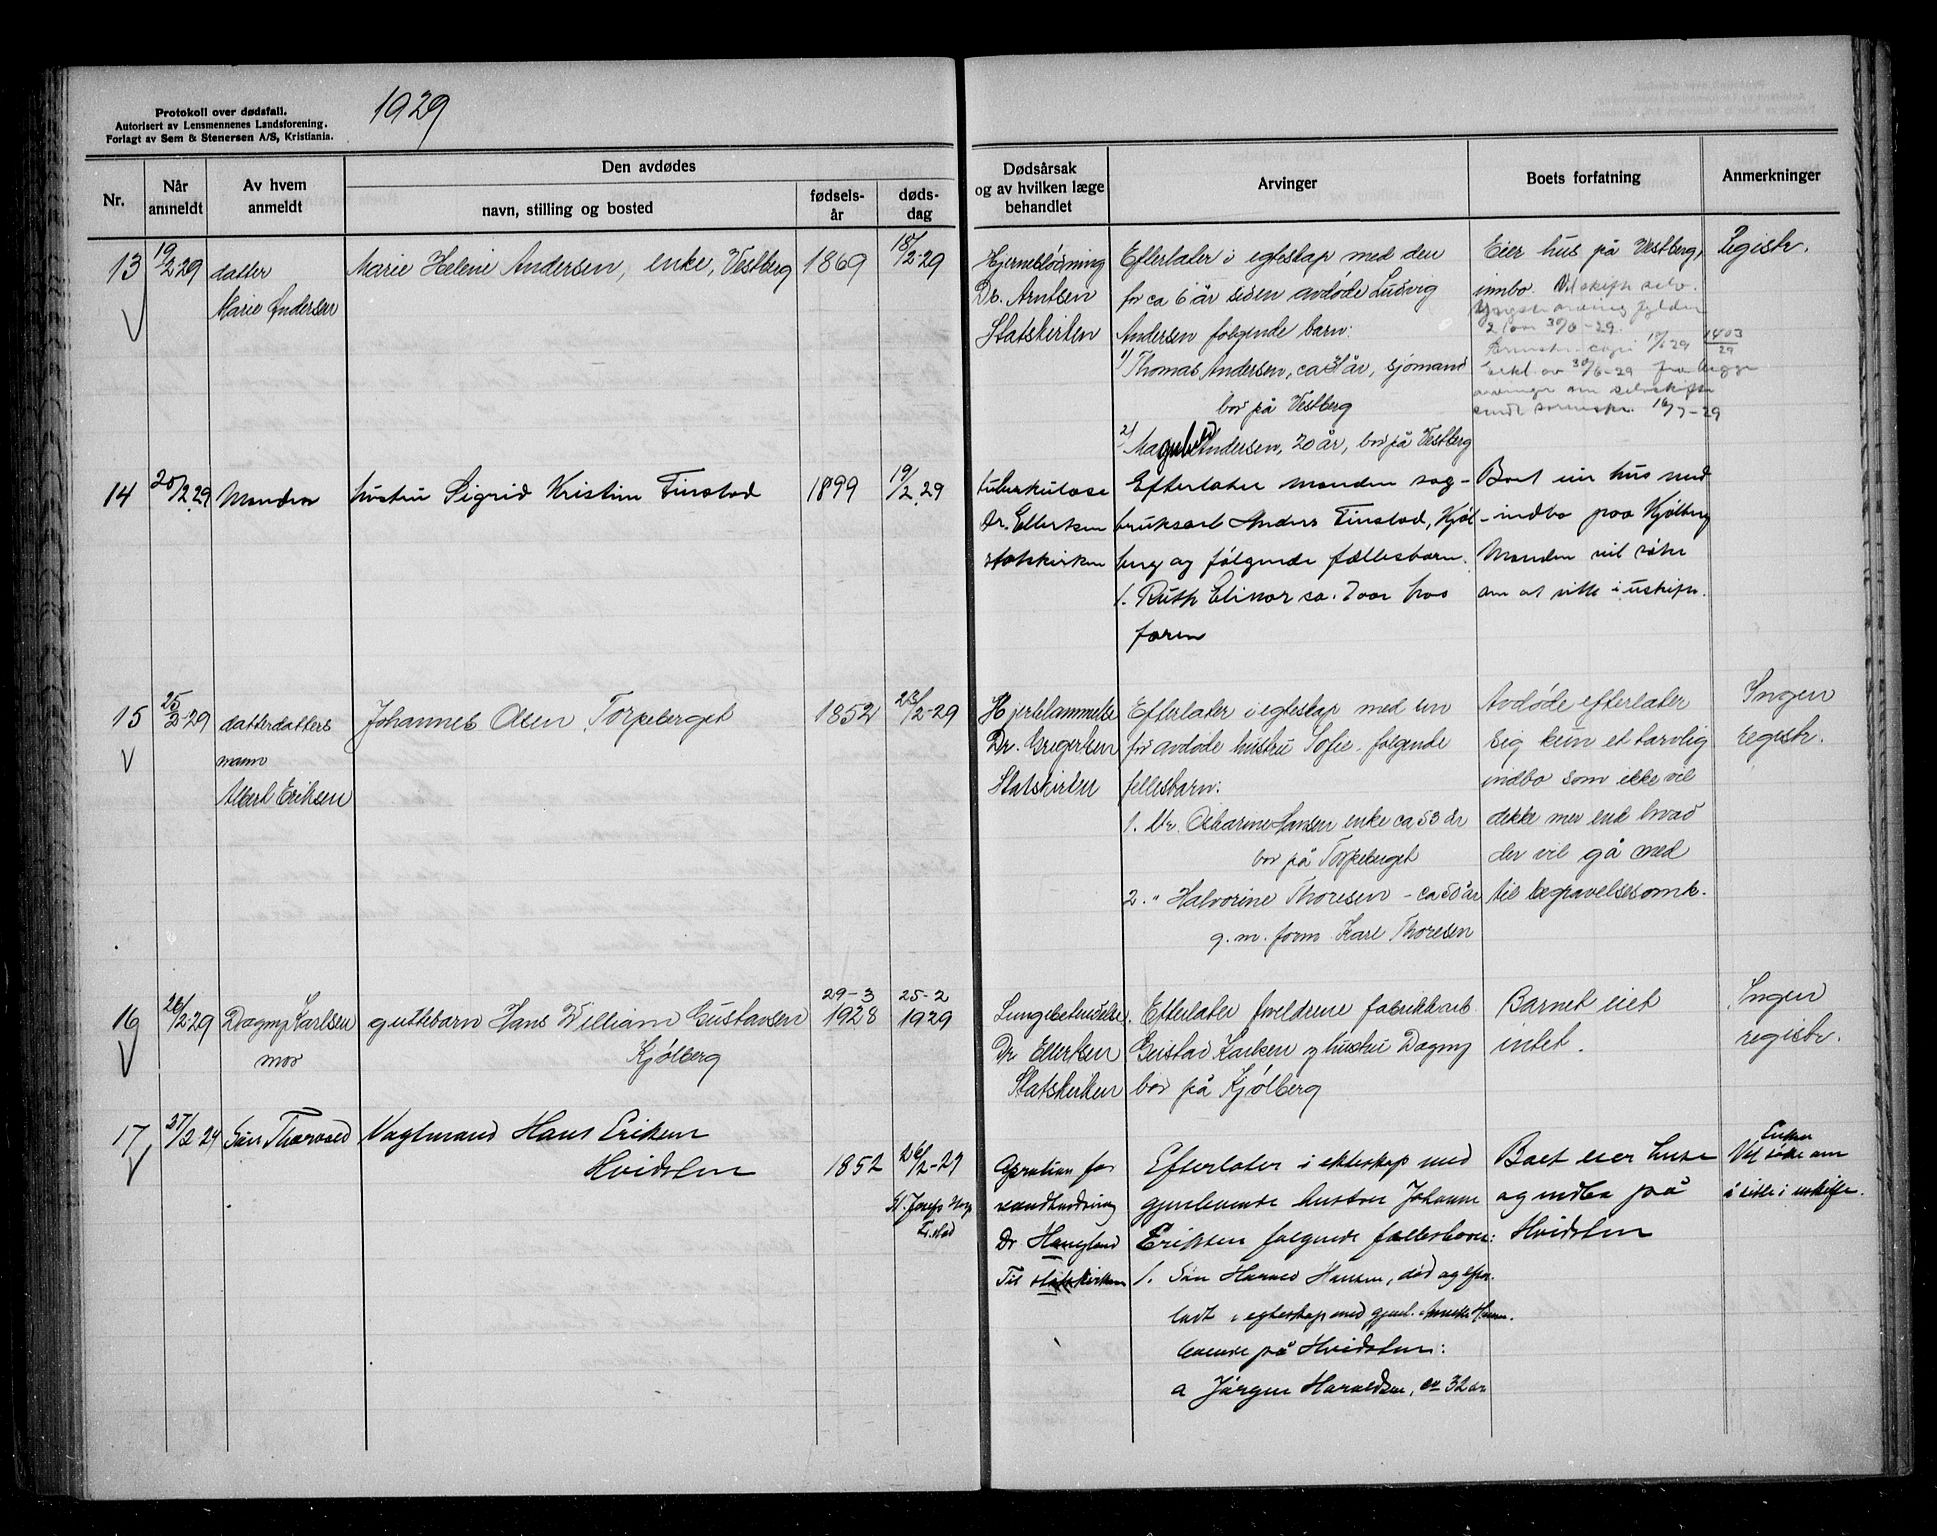 Protokoll over dødsfall.
Autorisert av Lensmennenes Landsforening.
Forlagt av Sem & Stenersen A/S, Kristiania.
1929
Nr.
Når anmeldt
Av hvem anmeldt
Den avdødes
navn, stilling og bosted
fødsels-år
døds-dag
Dødsårsak og av hvilken læge behandlet
Arvinger
Boets forfatning
Anmerkninger
13
19/2 29
datter
Marie Andersen
Marie Helene Andersen, enke, Vestberg
1869
18/2-29
Hjerneblødning
Dr. Arntsen
Statskirken
Efterlater i egteskap med den
for ca 6 år siden avdøde Ludvig
Andersen følgende barn:
1) Thomas Andersen, ca 31 år, sjømand
bor på Vestberg
2) Andersen, 20 år, bor på Vestberg
Eier hus på Vestberg,
innbo. Vil skifte selv.
Registr.
14
20/2 29
Manden
hustru Sigrid Kristine Finstad
1899
19/2 29
tuberkulose
dr. Ellerksen
statskirken
Efterlater manden sag-
bruksarb Anders Finstad, Kjøl-
berg og følgende fællesbarn.
1. Ruth Elinor ca. 7 aar hos
faren
Boet eier hus med
indbo paa Kjølberg
Manden vil søke
om at sitte i uskifte.
15
25/2-29
datterdatters
mann
Albert Eriksen
Johannes Olsen, Torpeberget
1852
23/2-29
Hjertelammelse
Dr. Gregersen
Statskirken
Efterlater i egteskap med en
før avdøde hustru Sofie følgende
fellesbarn:
1. Dtr. Hansen enke ca 53 år
bor på Torpeberget
2. " Halvorine Thoresen - ca 50 år
g. m. form Karl Thoresen
Avdøde efterlater
sig kun et tarvelig
indbo som ikke vil
dekke mer enn hvad
der vil gå med
til begravelsesomk.
Ingen
registr.
16
26/2 29
Dagny Karlsen
mor
guttebarn Hans William Gustavsen
Kjølberg
29-3
1928
25-2
1929
Lungebetendelse.
Dr Ellerksen
Statskirken
Efterlater foreldrene fabrikkarb
Gustav Karlsen og hustru Dagny
bor på Kjølberg
Barnet eiet
intet.
Ingen
registr.
17
27/2 29
Søn Thorvald
Vagtmand Hans Eriksen
Hvidsten
1852
26/2-29
St. Josefs Hosp
Fr.stad
Opration for
vandladning
Dr Haugland
Til statskirken
Efterlater i ekteskap med
gjenlevende hustru Johanne
Eriksen følgende fællesbarn:
1. Søn Harald Hansen, død og efter-
ladt i egteskap med gjenl. Hansen.
boende på Hvidsten:
a Jørgen Haraldsen, ca 32 år
Boet eier huse
og indbo på
Hvidsten
Enken
Vil søke om
å sitte i uskifte.